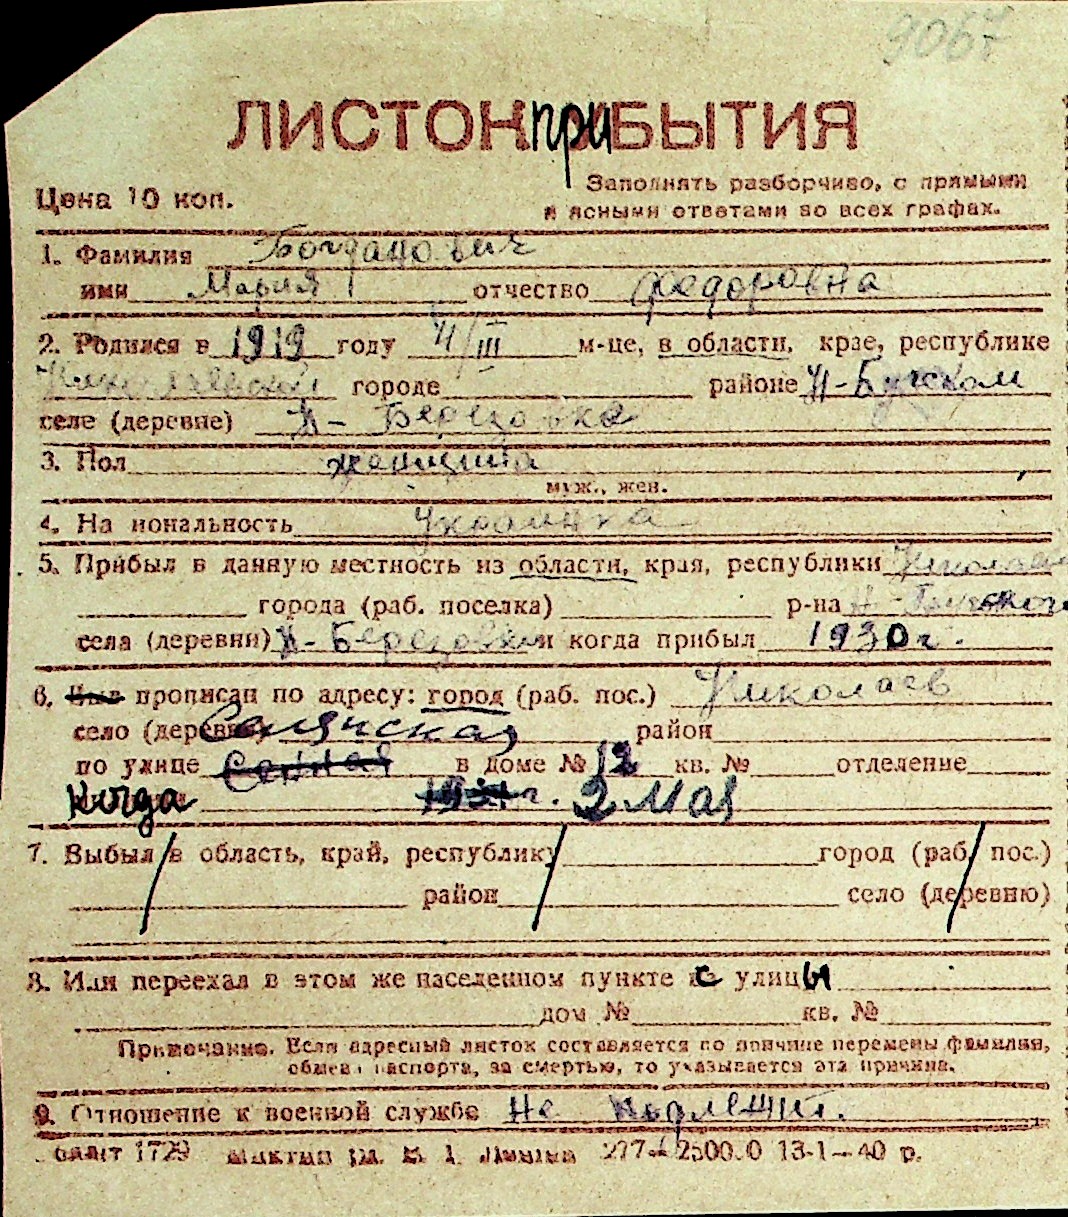 9067
ЛИСТОК ПРИБЫТИЯ
Цена 10 коп.
Заполнять разборчиво, с прямыми
и ясными ответами во всех графах.
1. Фамилия Богданович
имя Мария отчество Федоровна
2. Родился в 1919 году 4/III м-це, в области, крае, республике
Николаевской городе районе Н-Бугском
селе (деревне) Н-Березовка
3. Пол женщина
муж., жен.
4. Национальность Украинка
5. Прибыл в данную местность из области, края, республики Николаев
города (раб. поселка) р-на Н-Бугского
села (деревни) Н-Березовки и когда прибыл 1930 г.
6. Был прописан по адресу: город (раб. пос.) Николаев
село (деревня) Селянская район
по улице в доме № 12 кв. № отделение
Когда 1931 г. 2 Мая
7. Выбыл в область, край, республику город (раб. пос.)
район село (деревню)
8. Или переехал в этом же населенном пункте с улицы
дом № кв. №
Примечание. Если адресный листок составляется по причине перемены фамилии,
обмена паспорта, за смертью, то указывается эта причина.
9. Отношение к военной службе Не подлежит.
1729 им. В. И. Ленина 277 2500.0 13-1-40 р.